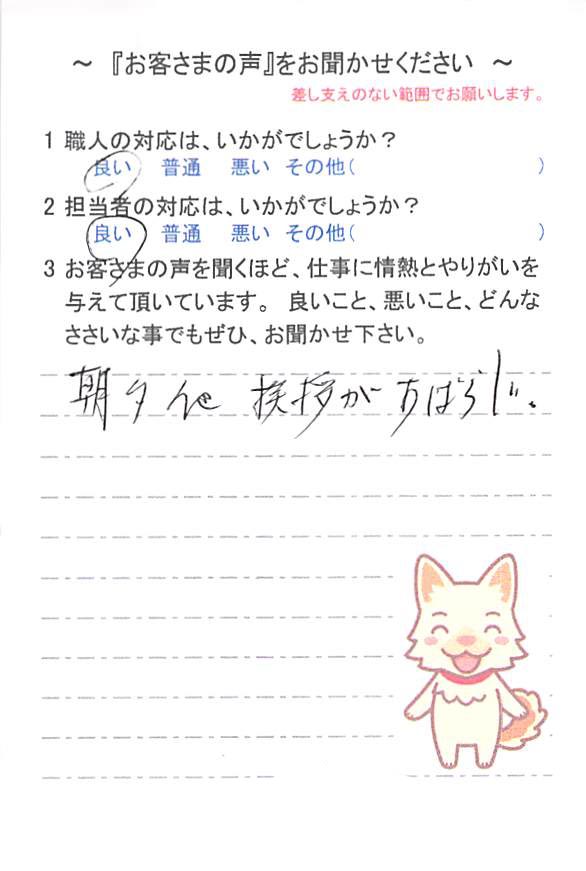 ～ 『お客さまの声』をお聞かせください ～
差し支えのない範囲でお願いします。
1 職人の対応は、いかがでしょうか？
良い 普通 悪い その他( )
2 担当者の対応は、いかがでしょうか？
良い 普通 悪い その他( )
3 お客さまの声を聞くほど、仕事に情熱とやりがいを
与えて頂いています。 良いこと、悪いこと、どんな
ささいな事でもぜひ、お聞かせ下さい。
朝夕 挨拶が すばらしい。